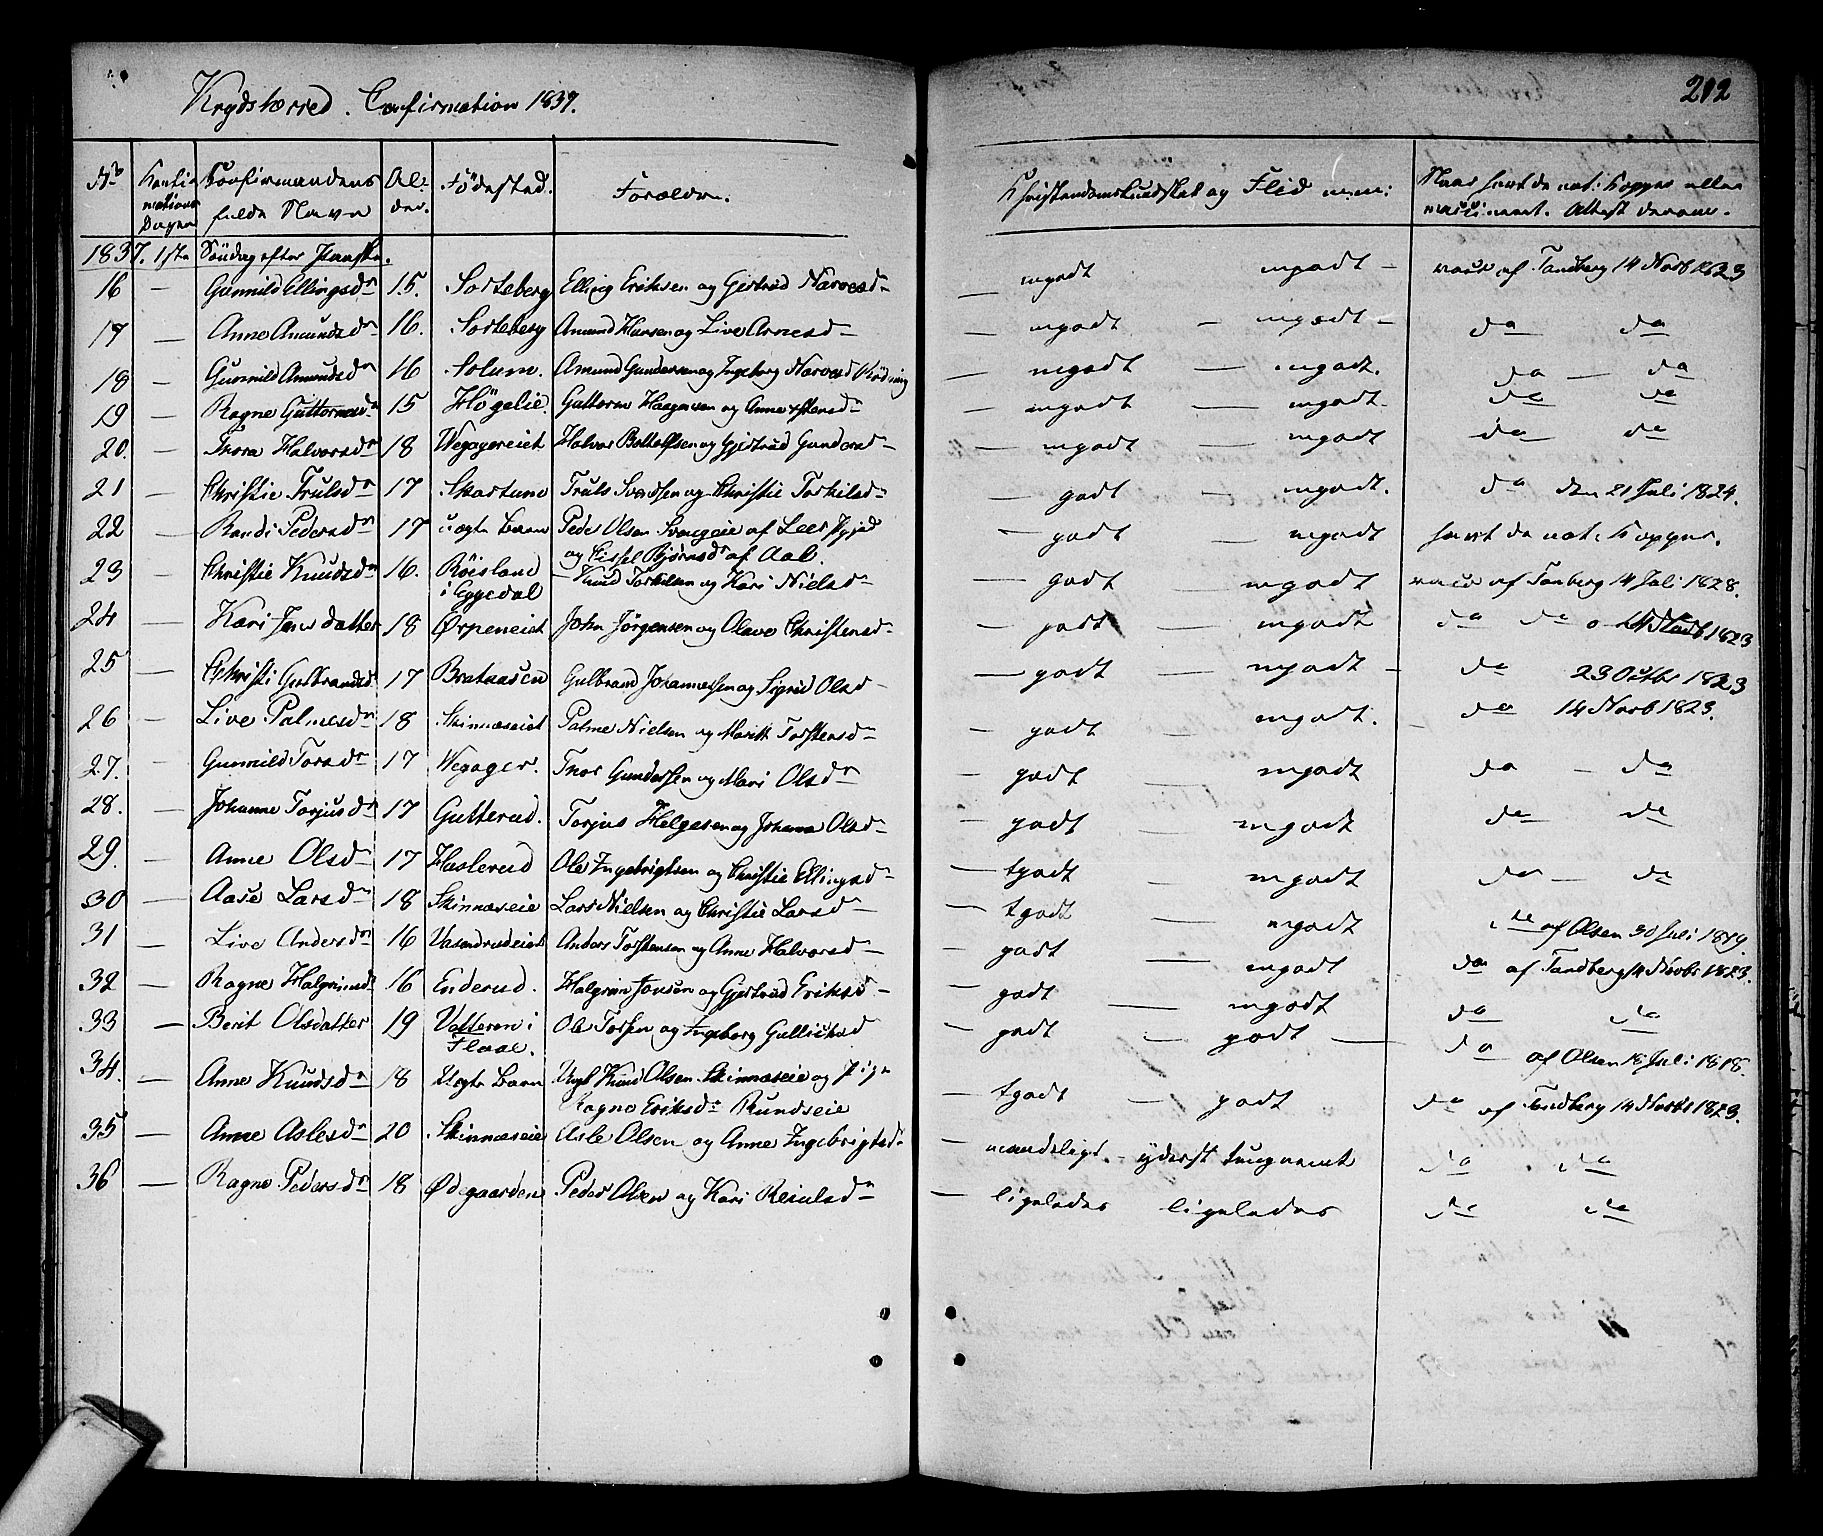 Krydsherred. Confirmation 1837.
212
No Confirmations Dagen Confirmandens fulde Navn Alder. Födested. Forældre. Christendomskundskab og Flid m.m: Naar havt de nat: Kopper eller vaccineret. Attest derom.
1837. 1ste Söndag efter Paaske.
16 — Gunnild Ellingsdr 15. Sorteberg Elling Eriksen og Gjertrud Narvesdr — mgodt mgodt — vacc af Tandberg 14 Novb 1823
17 — Anne Amundsdr 16. Sorteberg Amund Hansen og Live Arnesdr — mgodt — mgodt — do do
18 — Gunnild Amundsdr 16 Solum. Amund Gundersen og Ingeborg Narvesd — mgodt — mgodt. do — do
19 — Ragne Guttormsdr 15 Högelie Guttorm Haagensen og Anne — mgodt — mgodt. do do
20. — Thora Halvorsdr 18 Wegagereiet Halvor Bottolfsen og Gjertrud Gundersd — mgodt — mgodt do do
21 — Christie Trulsdr 17 Skartum Truls Svendsen og Christie Torkilsdr — godt — mgodt. do den 21 Juli 1824.
22 — Randi Pedersdr 17 uægte Barn Peder Olsen af
og Sissel Björnsdr af Aal. — godt — mgodt havt de nat: Kopper.
23 — Christie Knudsdr 16. Röisland
i Eggedal — Knud Torkilsen og Kari Nielsdr — godt mgodt vacc af Tanberg 14 Juli 1828.
24 — Kari Jensdatter 18 Ørpeneiet John Jörgensen og Olave Christensdr — godt — mgodt do do 14 Novb 1823
25 — Christi Gulbrandsd 17 Brataasen Gulbrand Johannessen og Sigrid Olsd — godt — mgodt — do 23 Octbr 1823
26 — Live Palmesdr 18 Skinnæseiet Palme Nielsen og Maritt Torstensdr — godt — mgodt. — do 14 Novb 1823.
27. — Gunnild Torsdr 17 Wegager. Thor Gundersen og Mari Olsdr — godt — mgodt do — do
28. — Johanne Torjusdr 17 Gutterud. Torjus Helgesen og Johanne Olsdr — godt — mgodt do do
29. — Anne Olsdr 17 Haslerud Ole Ingebrigtsen og Christie Ellingsdr — tgodt — mgodt do — do
30 — Aase Larsdr 18 Skinnæseie Lars Nielsen og Christie Larsdr — tgodt — mgodt do af Olsen 30 Juli 1819.
31 — Live Andersdr 16 Anders Torstensen og Anne Halvorsdr — godt — mgodt do af Tandberg 14 Novbr 1823.
32 — Ragne Halgrimsd 16 Enderud. Halgrim Jonsen og Gjertrud Eriksd — godt — mgodt do do
33 — Berit Olsdatter 19 Vatteren i
Flaae. Ole Torsen og Ingeborg Gulliksd — godt — godt — do af Olsen 18 Juli 1818.
34. — Anne Knudsdr 18 Uegte Barn Ungk Knud Olsen Skinnæseie og Pige
Ragne Eriksdr Rundseie — tgodt — godt do af Tandberg 14 Novbr 1823.
35 — Anne Aslesdr 20 Skinnæseie Asle Olsen og Anne Ingebrigtsd. — maadeligt. — yderst tungnemt do . do
36 — Ragne Pedersdr 18 Ødegaarden Peder Olsen og Kari Reiulsdr — ligeledes ligeledes do do